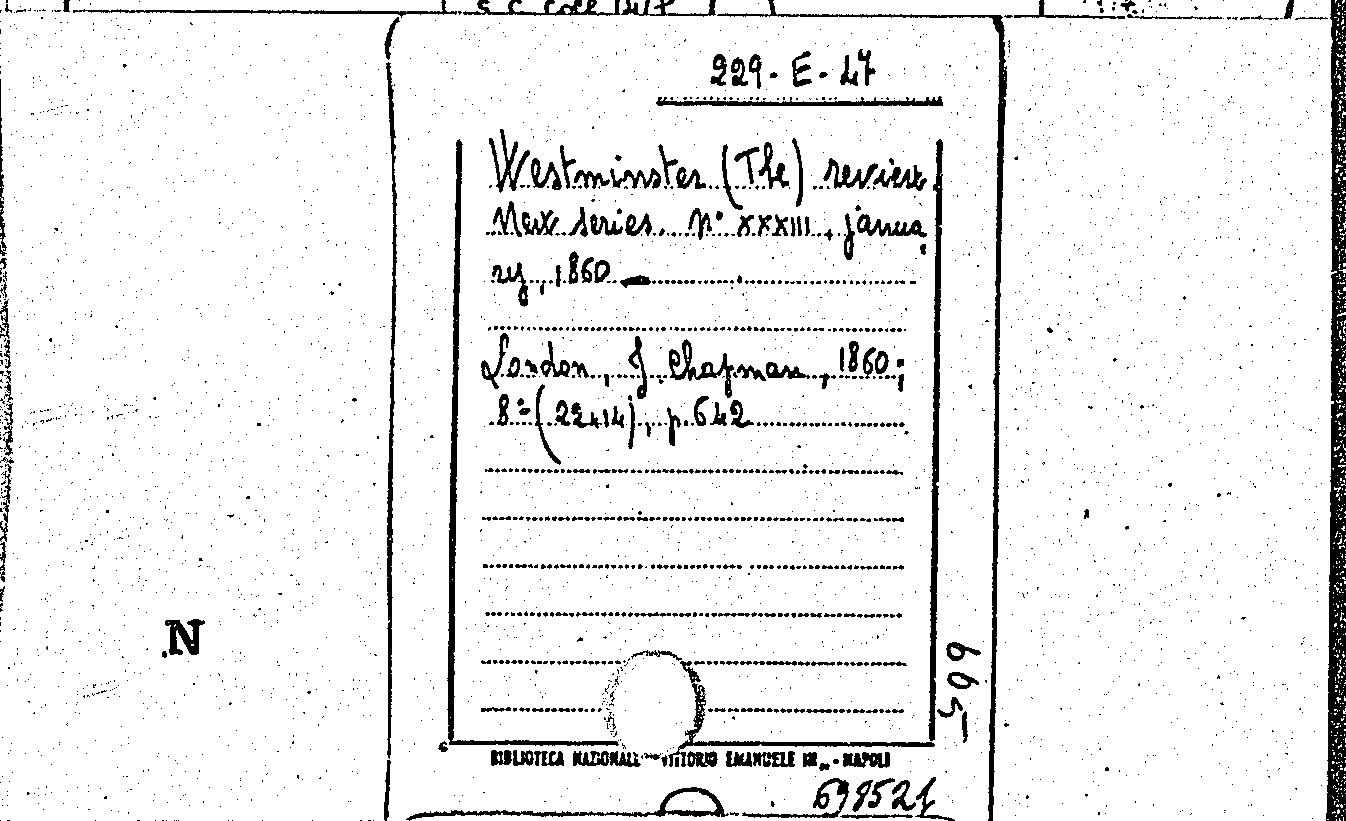 229-E-47
Westminster (The) review.
New series. N° XXXIII, janua
ry, 1860 —
London, J. Chapman, 1860;
8° (22x14), p. 642
N
BIBLIOTECA NAZIONALE VITTORIO EMANUELE III - NAPOLI